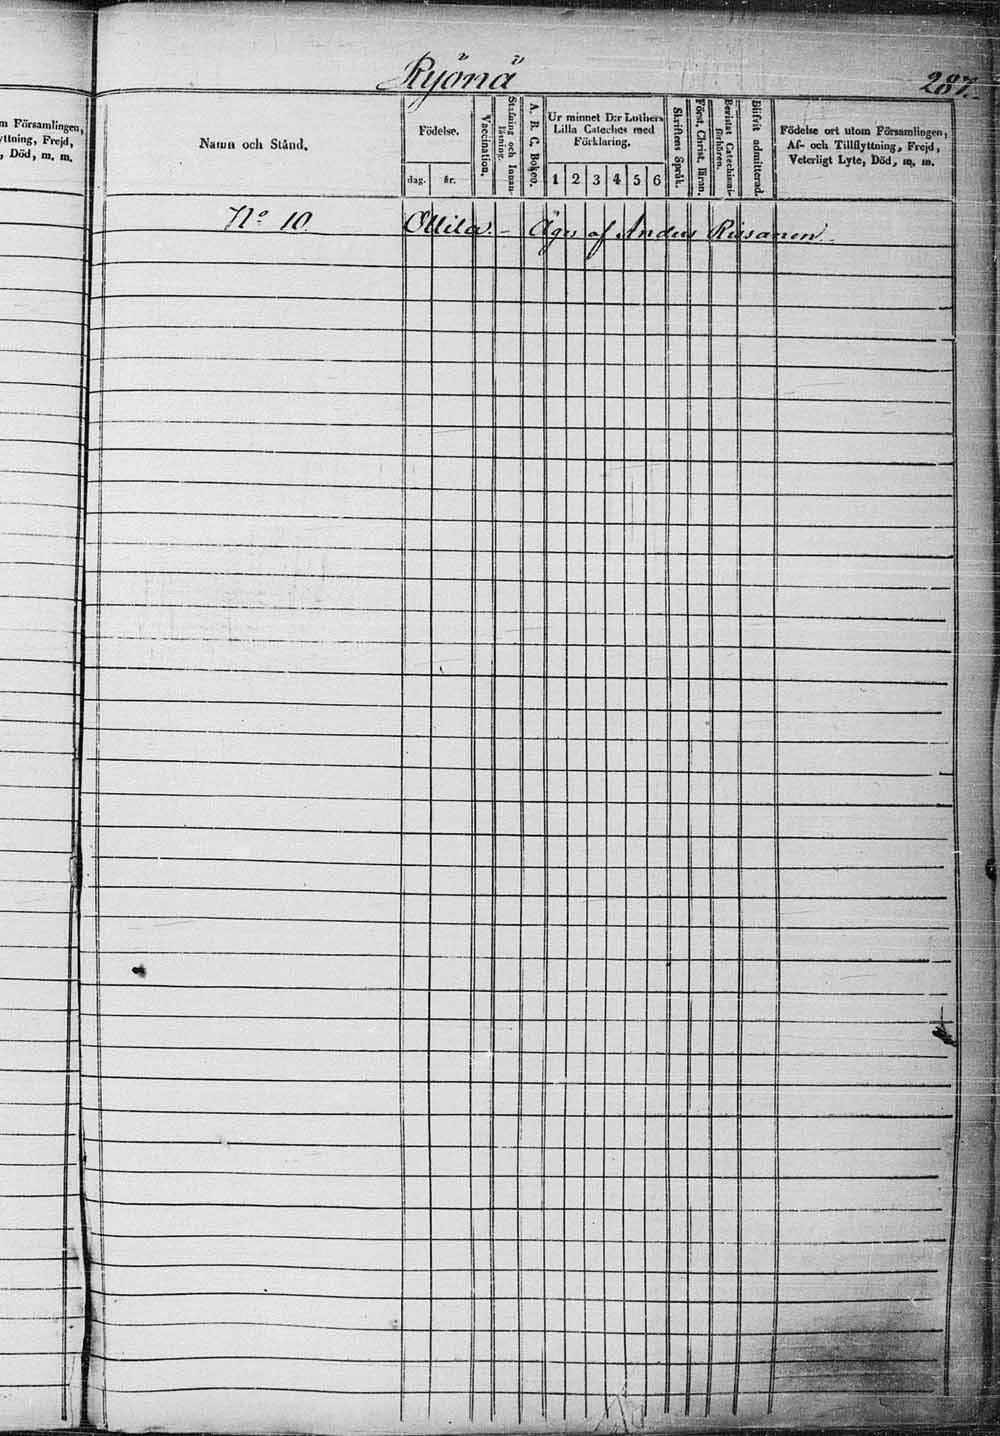 Ryönä
287.
m Församlingen,
yttning, Frejd,
, Död, m. m.
Namn och Stånd.
Födelse.
dag.
år.
Vaccination.
Stafning och Innan-
läsning.
A. B. C. Boken.
Ur minnet D:r Luthers
Lilla Cateches med
Förklaring.
1 2 3 4 5 6
Skriftens Språk.
Först. Christ. läran.
Bevistat Catechismi-
förhören.
Blifvit admitterad.
Födelse ort utom Församlingen,
Af- och Tillflyttning, Frejd,
Veterligt Lyte, Död, m. m.
No 10 Ollila. – Äges af Anders Rissanen.